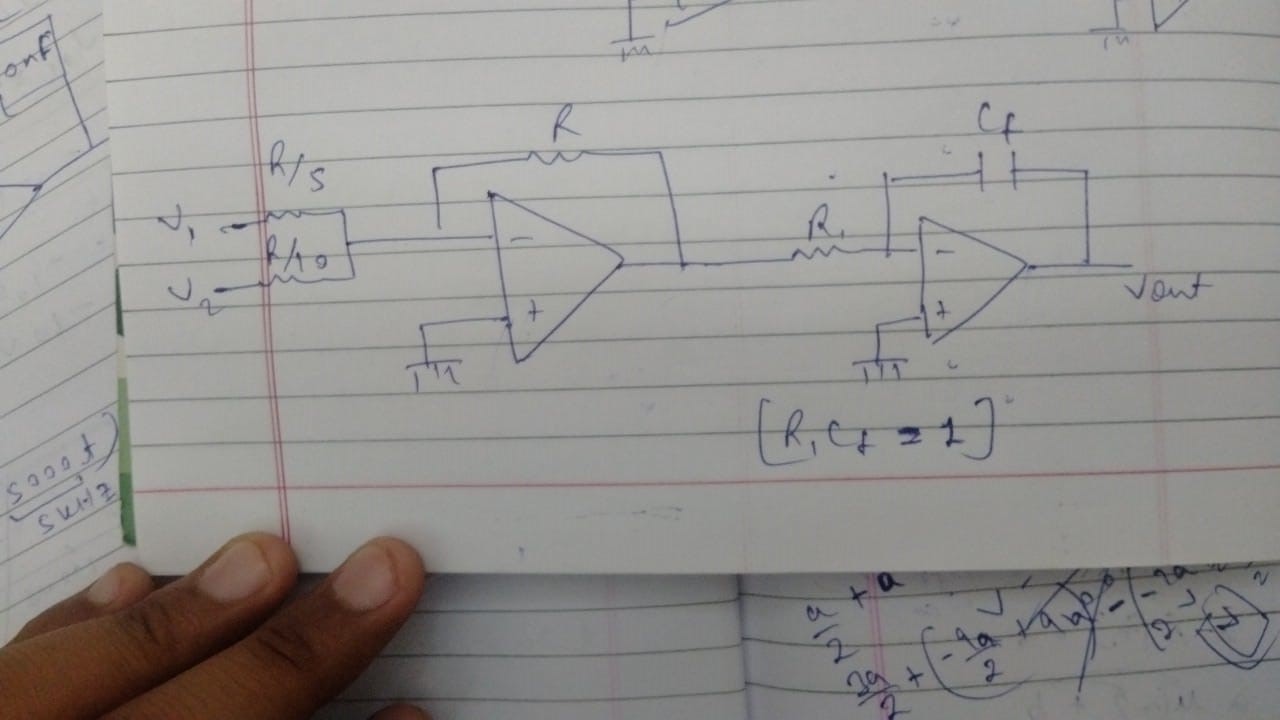 onf
R
Cf
R/5
V1
R/10
R1
-
-
V2
+
+
Vout
[R1 Cf = 1]
5000t)
5KHz
a/2 + a
3a/2 + (-9a/2